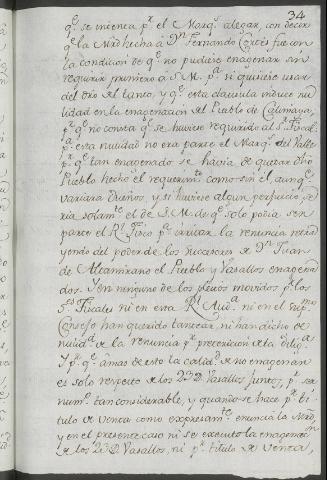 34
qᵉ. se intenta pʳ. el Marqˢ. alegar, con decir
qᵉ la Mrd hecha á Dⁿ Fernando Cortés fue con
la condicion de qᵉ no pudiere enagenar sin
requirir primero á S. M. pᵃ. si quisiere usar
del dro del tanto, y qᵉ esta clausula induce nu
lidad en la enagenacion del Pueblo de Calimaya,
pʳ. qᵉ no consta qᵉ se huviese requerido al Sʳ. Fiscal
pᵃ. esta nulidad no era parte el Marqˢ. del Valle
pʳ. qᵉ tan enagenado se havia de quedar dho
Pueblo hecho el requerimᵗᵒ. como sin él, aunqᵉ
variara Dueños, y si huviese algun perjuicio se
ria solamᵗᵉ. el de S. M. de qᵉ solo podia ser
parte el Rˡ. Fisco pᵃ. irritar la renuncia retra
yendo del poder de los succesores de Dⁿ Juan
de Altamirano el Pueblo y Vasallos enagena
dos. Y en ninguno de los pleitos movidos pʳ. los
SSᵉˢ. Fiscales ni en esta Rˡ. Audᵃ. ni en el supᵐᵒ
Consejo han querido tantear, ni han dicho de
nulidᵈ. de la renuncia pʳ. preterixion de la obligⁿ
Y pʳ. qᵉ á mas de esto la calidᵈ. de no enagenar
es solo respecto de los 23D. Vasallos juntos, pʳ. ser
numᵒ. tan considerable, y quando se hace pʳ. ti
tulo de venta como expresamᵗᵉ. enuncia la Mrd
y en el presente caso ni se executó la enagenacⁿ
de los 23D. Vasallos, ni pʳ. titulo de venta,